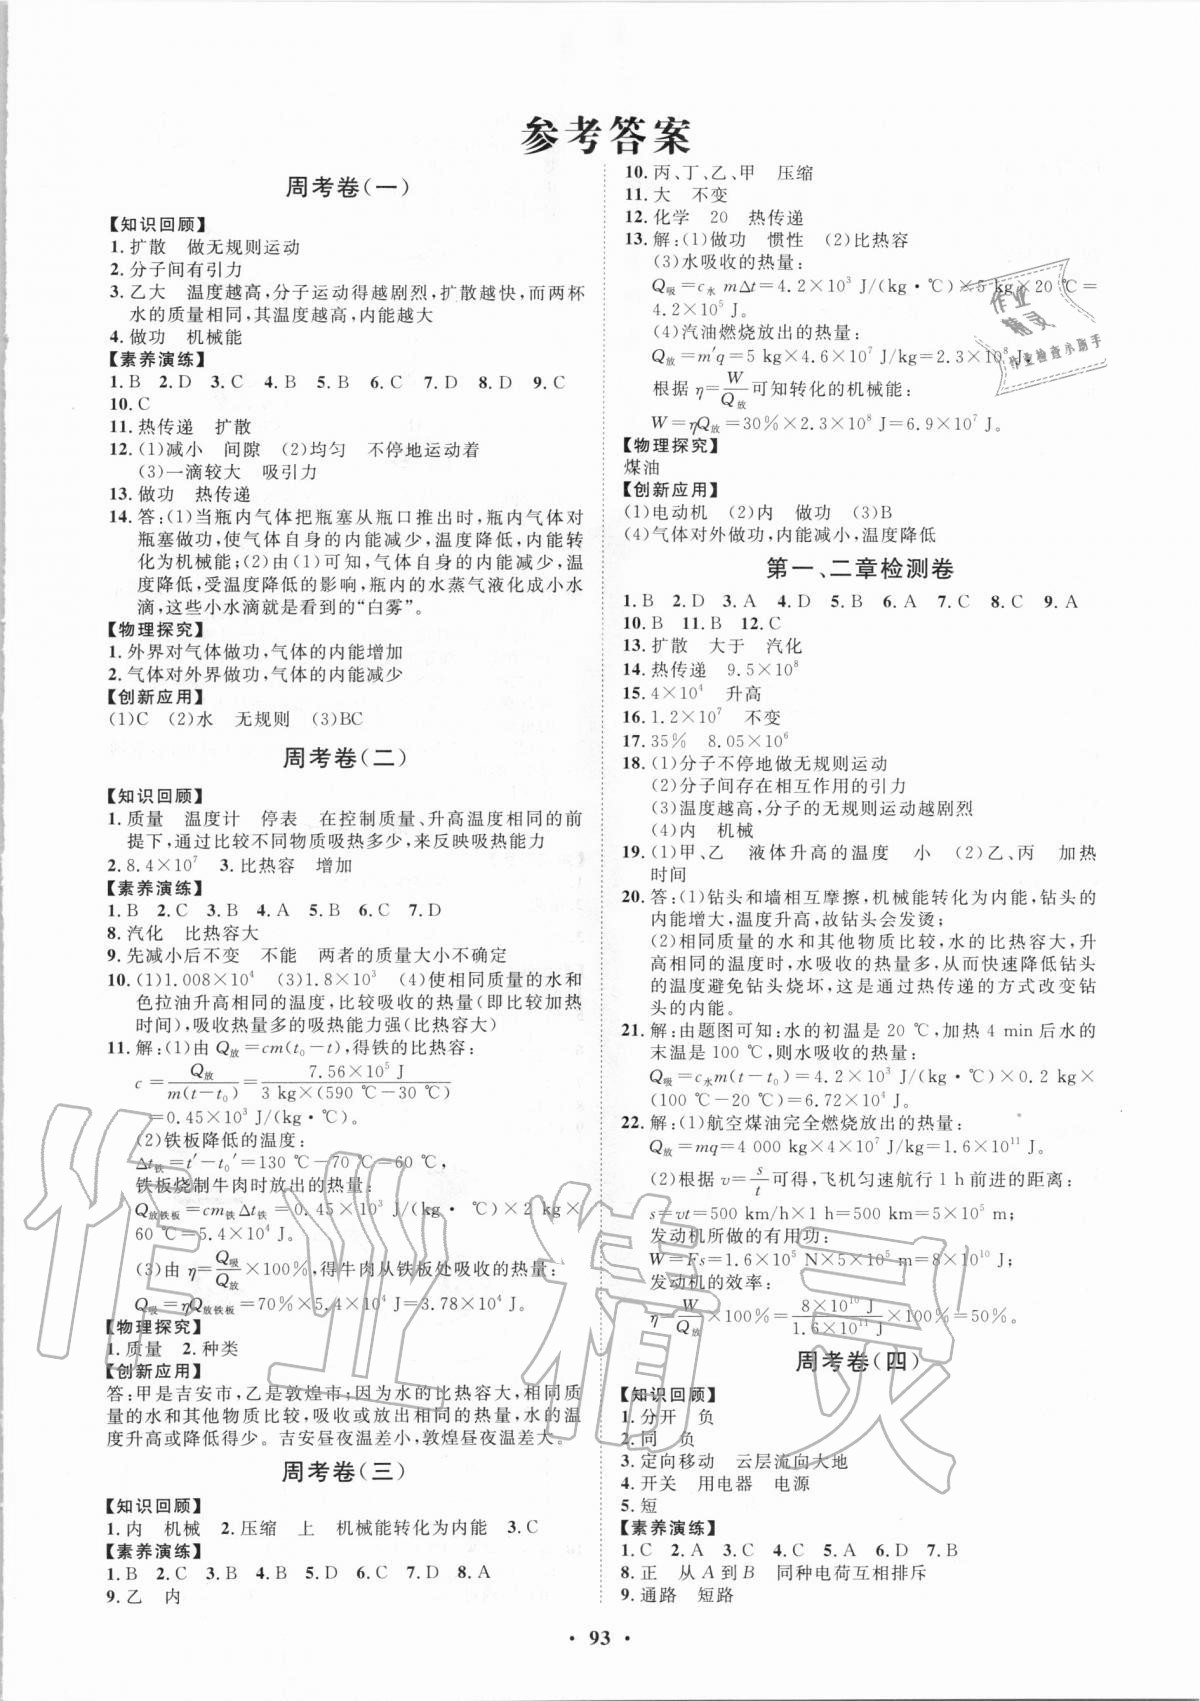 参考答案
周考卷(一)
【知识回顾】
1.扩散 做无规则运动
2.分子间有引力
3.乙大 温度越高,分子运动得越剧烈,扩散越快,而两杯
水的质量相同,其温度越高,内能越大
4.做功 机械能
【素养演练】
1.B 2.D 3.C 4.C 5.B 6.C 7.D 8.D 9.C
10.C
11.热传递 扩散
12.(1)减小 间隙 (2)均匀 不停地运动着
(3)一滴较大 吸引力
13.做功 热传递
14.答:(1)当瓶内气体把瓶塞从瓶口推出时,瓶内气体对
瓶塞做功,使气体自身的内能减少,温度降低,内能转
化为机械能;(2)由(1)可知,气体自身的内能减少,温
度降低,受温度降低的影响,瓶内的水蒸气液化成小水
滴,这些小水滴就是看到的“白雾”。
【物理探究】
1.外界对气体做功,气体的内能增加
2.气体对外界做功,气体的内能减少
【创新应用】
(1)C (2)水 无规则 (3)BC
周考卷(二)
【知识回顾】
1.质量 温度计 停表 在控制质量、升高温度相同的前
提下,通过比较不同物质吸热多少,来反映吸热能力
2.8.4×10⁷ 3.比热容 增加
【素养演练】
1.B 2.C 3.B 4.A 5.B 6.C 7.D
8.汽化 比热容大
9.先减小后不变 不能 两者的质量大小不确定
10.(1)1.008×10⁴ (3)1.8×10³ (4)使相同质量的水和
色拉油升高相同的温度,比较吸收的热量(即比较加热
时间),吸收热量多的吸热能力强(比热容大)
11.解:(1)由 Q放=cm(t₀-t),得铁的比热容:
c=Q放/m(t-t₀)=7.56×10⁵ J/3 kg×(590 ℃-30 ℃)
=0.45×10³ J/(kg·℃)
(2)铁板降低的温度:
Δt铁=t′-t₀′=130 ℃-70 ℃=60 ℃,
铁板烧制牛肉时放出的热量:
Q放铁板=cm铁Δt铁=0.45×10³ J/(kg·℃)×2 kg×
60 ℃=5.4×10⁴ J。
(3)由 η=Q吸/Q放×100%,得牛肉从铁板处吸收的热量:
Q吸=ηQ放铁板=70%×5.4×10⁴ J=3.78×10⁴ J。
【物理探究】
1.质量 2.种类
【创新应用】
答:甲是吉安市,乙是敦煌市;因为水的比热容大,相同质
量的水和其他物质比较,吸收或放出相同的热量,水的温
度升高或降低得少。吉安昼夜温差小,敦煌昼夜温差大。
周考卷(三)
【知识回顾】
1.内 机械 2.压缩 上 机械能转化为内能 3.C
【素养演练】
1.B 2.C 3.B 4.B 5.D 6.D 7.D 8.A
9.乙 内
10.丙、丁、乙、甲 压缩
11.大 不变
12.化学 20 热传递
13.解:(1)做功 惯性 (2)比热容
(3)水吸收的热量:
Q吸=c水 mΔt=4.2×10³ J/(kg·℃)×5 kg×20 ℃=
4.2×10⁵ J。
(4)汽油燃烧放出的热量:
Q放=m′q=5 kg×4.6×10⁷ J/kg=2.3×10⁸ J。
根据 η=W/Q放 可知转化的机械能:
W=ηQ放=30%×2.3×10⁸ J=6.9×10⁷ J。
【物理探究】
煤油
【创新应用】
(1)电动机 (2)内 做功 (3)B
(4)气体对外做功,内能减小,温度降低
第一、二章检测卷
1.B 2.D 3.A 4.D 5.B 6.A 7.C 8.C 9.A
10.B 11.B 12.C
13.扩散 大于 汽化
14.热传递 9.5×10⁸
15.4×10⁴ 升高
16.1.2×10⁷ 不变
17.35% 8.05×10⁶
18.(1)分子不停地做无规则运动
(2)分子间存在相互作用的引力
(3)温度越高,分子的无规则运动越剧烈
(4)内 机械
19.(1)甲、乙 液体升高的温度 小 (2)乙、丙 加热
时间
20.答:(1)钻头和墙相互摩擦,机械能转化为内能,钻头的
内能增大,温度升高,故钻头会发烫;
(2)相同质量的水和其他物质比较,水的比热容大,升
高相同的温度时,水吸收的热量多,从而快速降低钻头
的温度避免钻头烧坏,这是通过热传递的方式改变钻
头的内能。
21.解:由题图可知:水的初温是 20 ℃,加热 4 min 后水的
末温是 100 ℃,则水吸收的热量:
Q吸=c水m(t-t₀)=4.2×10³ J/(kg·℃)×0.2 kg×
(100 ℃-20 ℃)=6.72×10⁴ J。
22.解:(1)航空煤油完全燃烧放出的热量:
Q放=mq=4 000 kg×4×10⁷ J/kg=1.6×10¹¹ J。
(2)根据 v=s/t可得,飞机匀速航行 1 h 前进的距离:
s=vt=500 km/h×1 h=500 km=5×10⁵ m;
发动机所做的有用功:
W=Fs=1.6×10⁵ N×5×10⁵ m=8×10¹⁰ J;
发动机的效率:
η=W/Q放×100%=8×10¹⁰ J/1.6×10¹¹ J×100%=50%。
周考卷(四)
【知识回顾】
1.分开 负
2.同 负
3.定向移动 云层流向大地
4.开关 用电器 电源
5.短
【素养演练】
1.C 2.A 3.C 4.C 5.A 6.D 7.B
8.正 从 A 到 B 同种电荷互相排斥
9.通路 短路
· 93 ·
作业精灵
作业
精灵
作业检查小助手